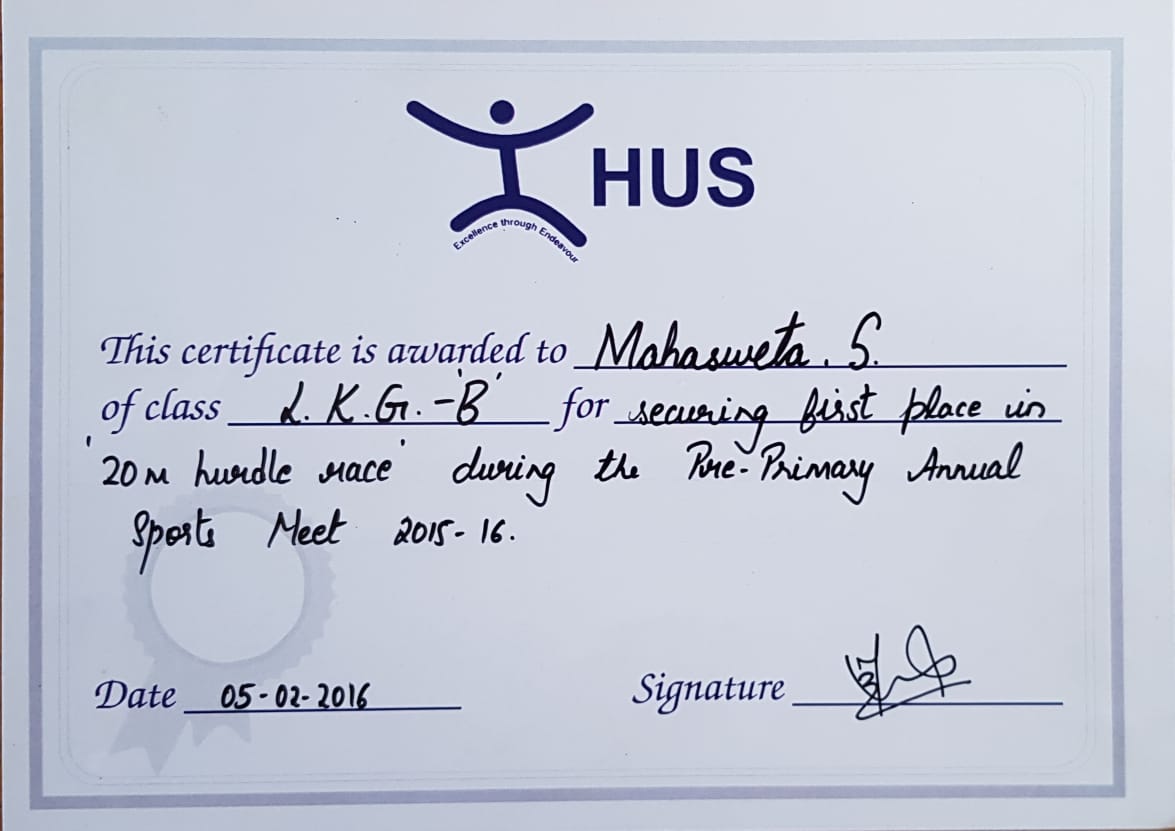 HUS
Excellence through Endeavour
This certificate is awarded to Mahasweta. S.
of class L.K.G.-'B' for securing first place in
'20m hurdle race' during the Pre-Primary Annual
Sports Meet 2015-16.
Date 05-02-2016 Signature